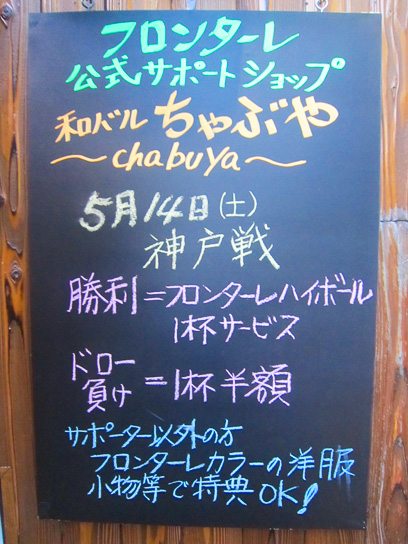 フロンターレ
公式サポートショップ
和バル ちゃぶや
〜chabuya〜
5月14日(土)
神戸戦
勝利=フロンターレハイボール
1杯サービス
ドロー
負け =1杯半額
サポーター以外の方
フロンターレカラーの洋服
小物等で特典OK!